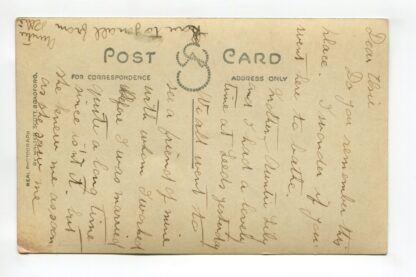 POST CARD
FOR CORRESPONDENCE
ADDRESS ONLY
Dear
Do you remember this
place. I wonder if you
went here to bathe.
Mother, Auntie Lily
and I had a lovely
time at Leeds yesterday
We all went to
see a friend of mine
with whom I worked
before I was married
quite a long time
since isn't it. But
she knew me as soon
as she saw me
love to you all from
Auntie
REAL PHOTOGRAPH